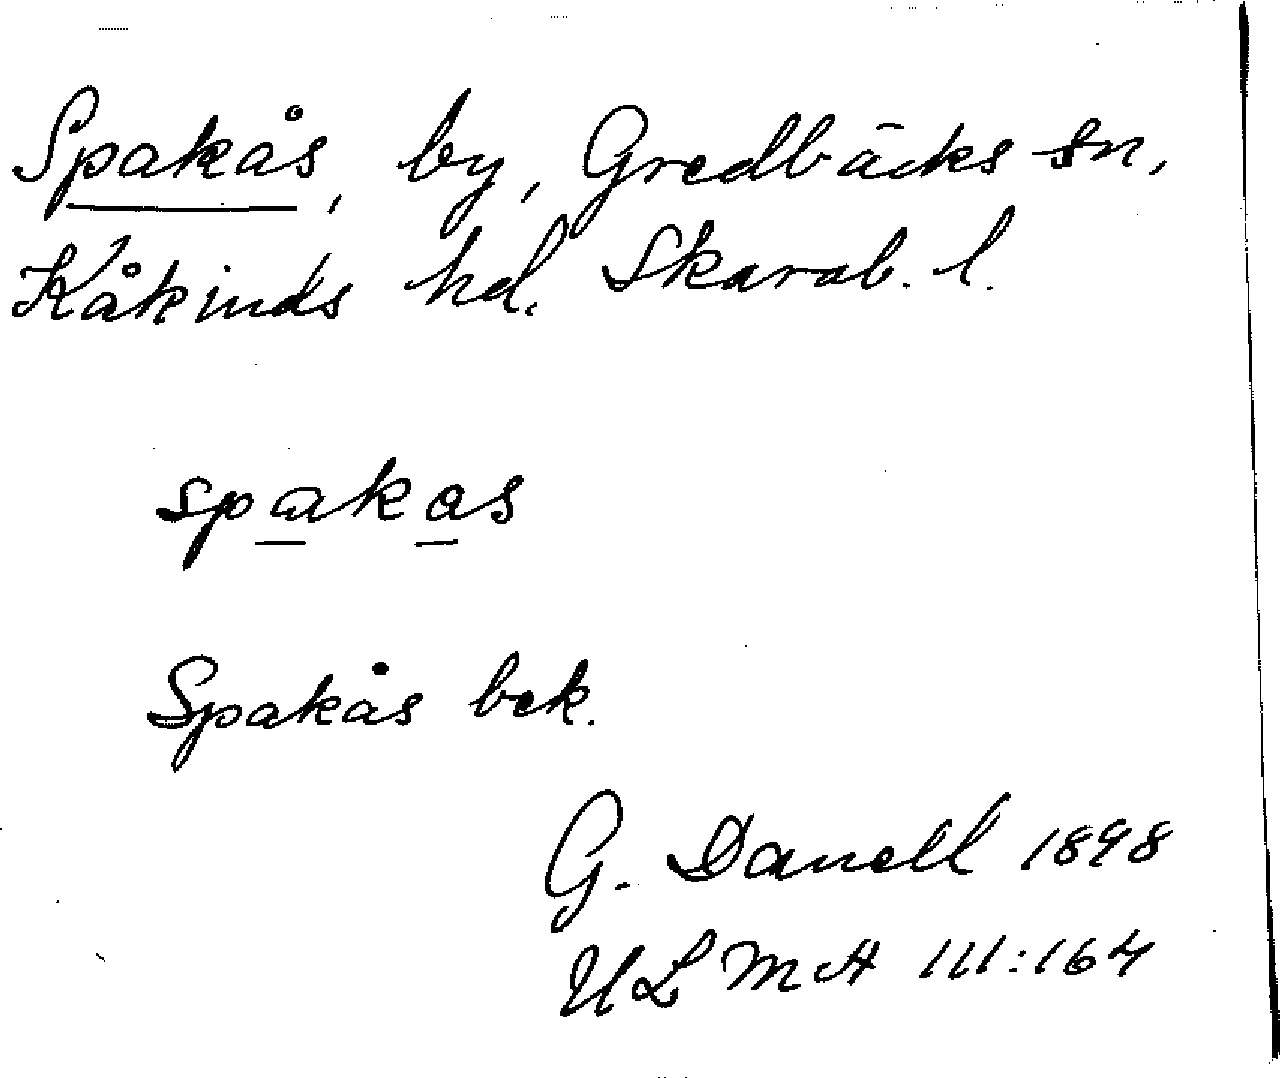 Spakås, by, Gredbäcks sn,
Kåkinds hd. Skarab. l.
spakas
Spakås bek.
G. Danell 1898
ULMA 111:164